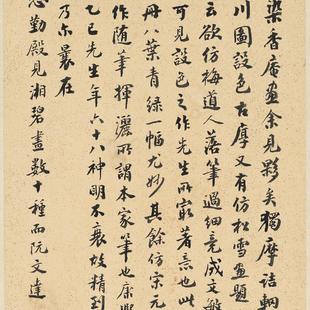 染香庵画余見夥矣獨摩詰輞
川圖設色古厚又有仿松雪画題
云欲仿梅道人落筆過細竟成文敏
可見設色之作先生所最著意也此
册八葉青綠一幅尤妙其餘仿宋元
作随筆揮灑所謂本家筆也康熙
乙巳先生年六十八神明不衰故精到
乃尓曩在
懋勤殿見湘碧畫數十種而阮文達